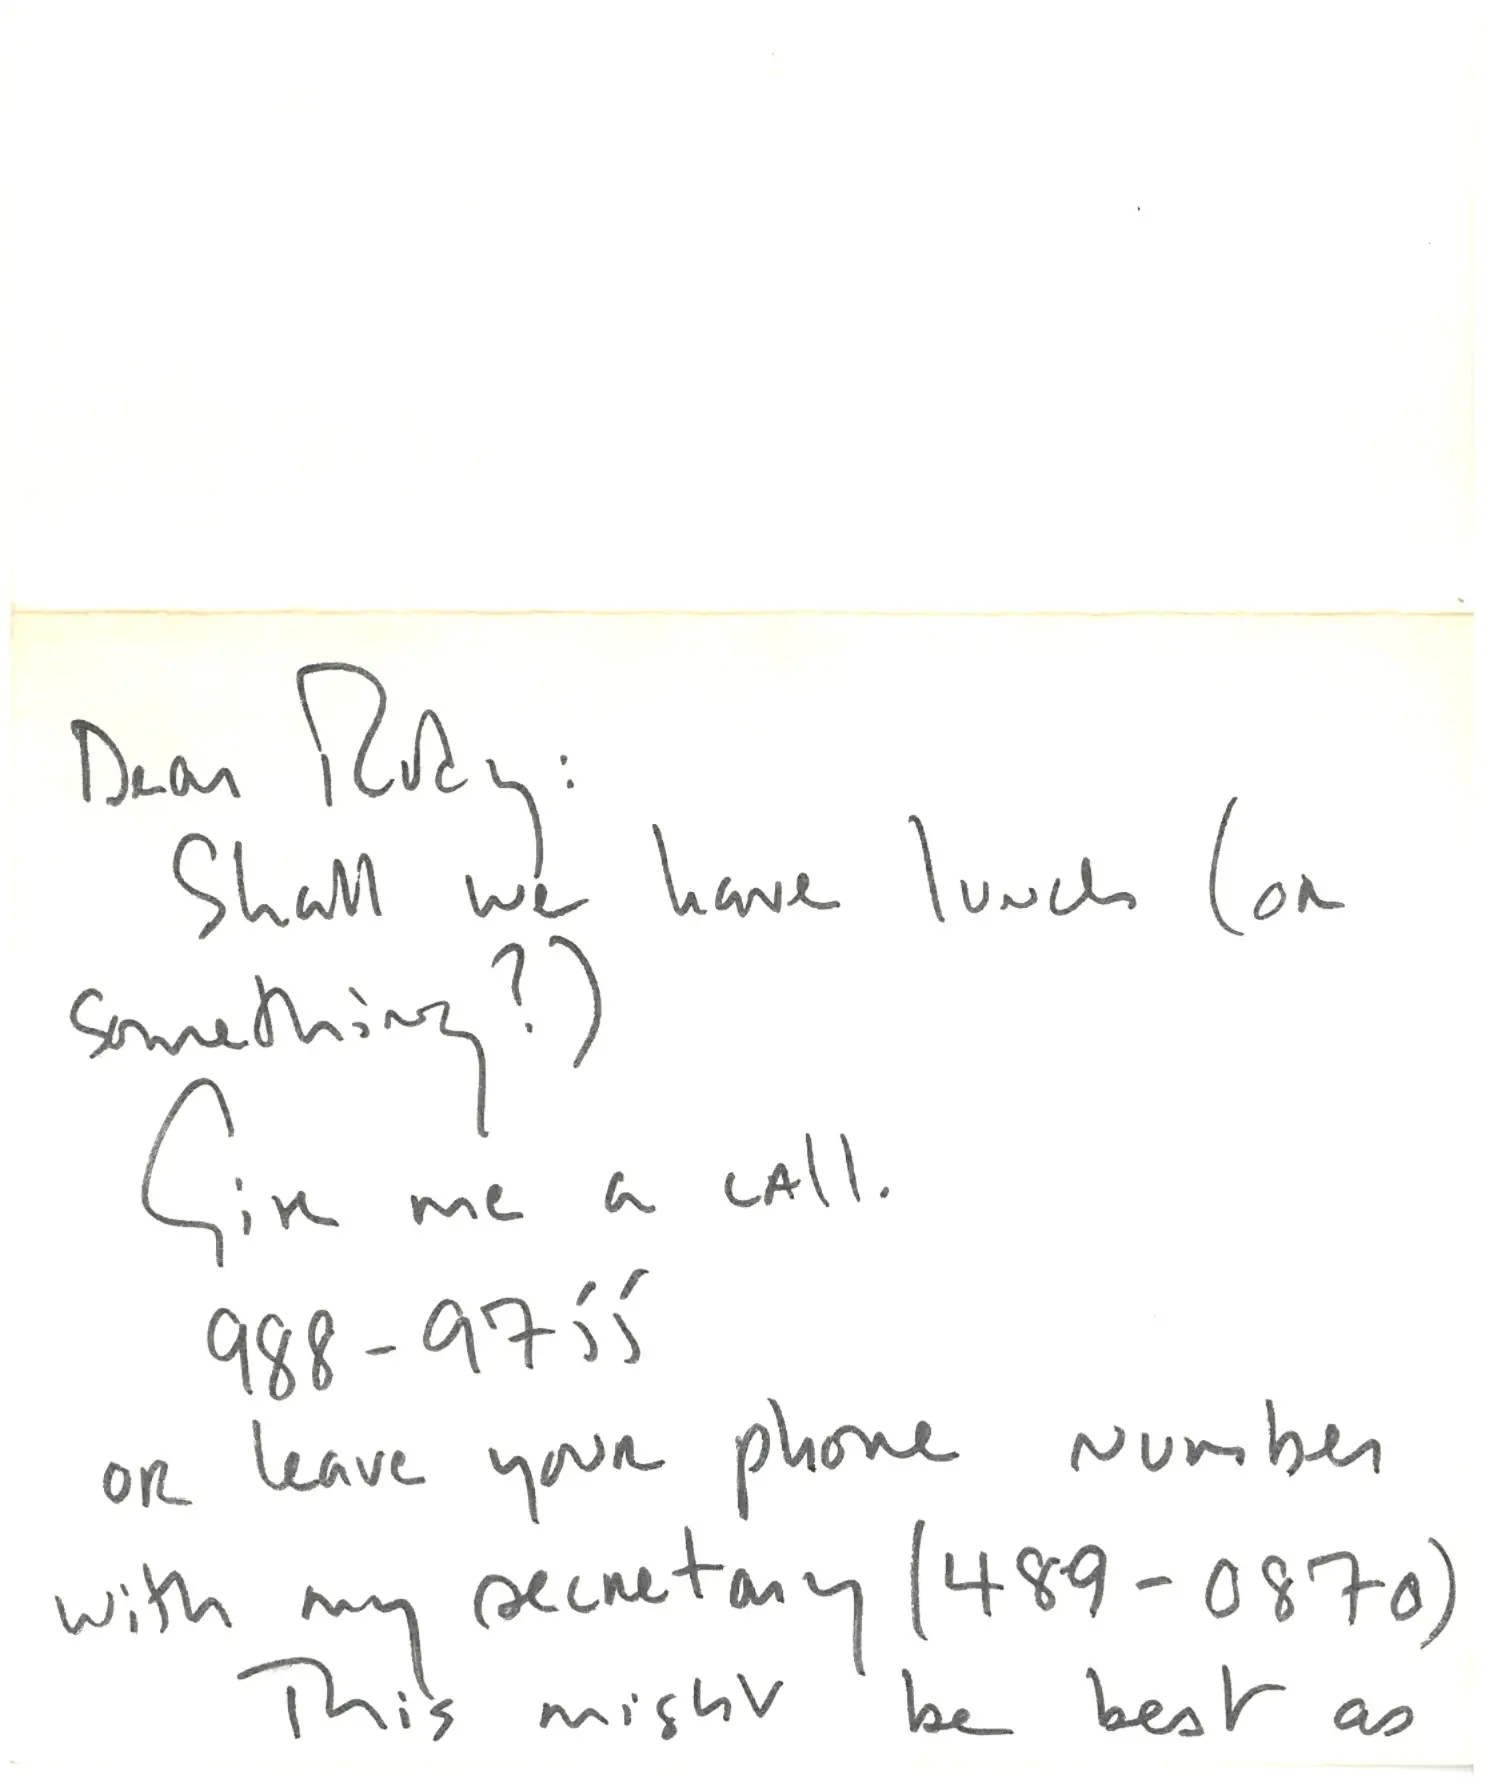 Dear Rudy:
Shall we have lunch (or
something?)
Give me a call.
988-9755
or leave your phone number
with my secretary (489-0870)
This might be best as